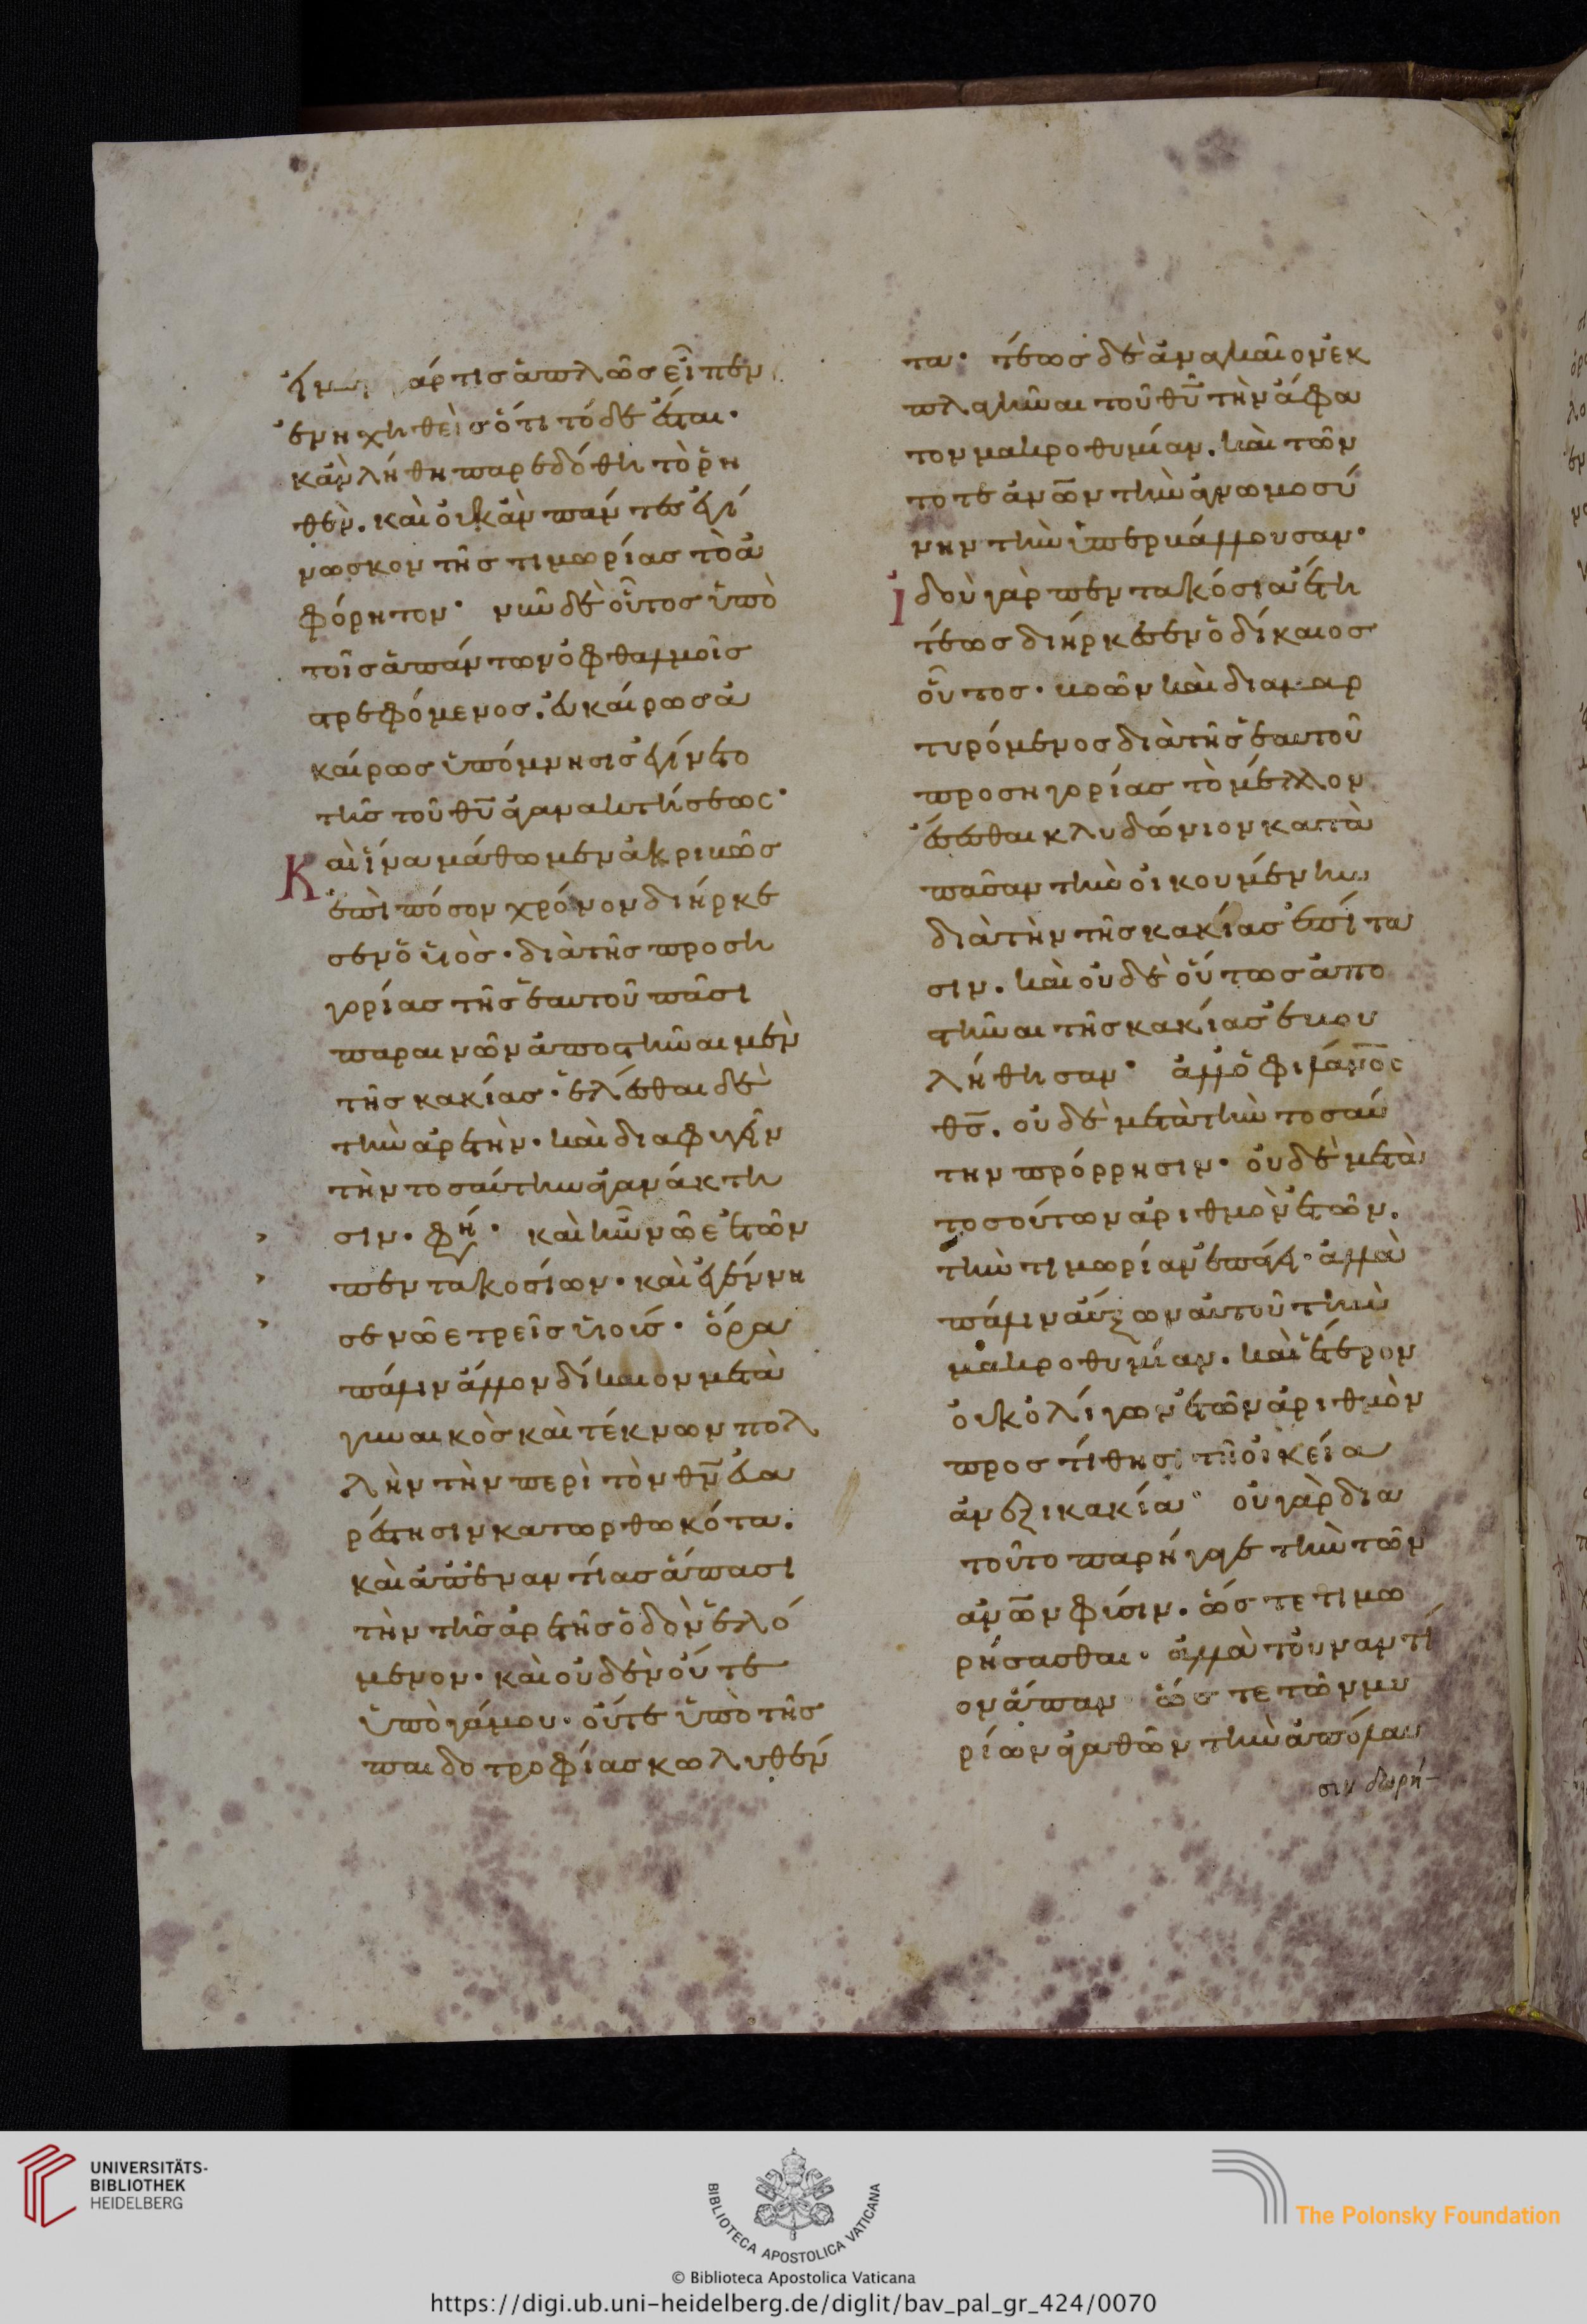 τις ἁπλῶς εἶπεν
ἐνηχηθεὶς ὅτι τόδε ἔσται·
κἂν λήθη παρεδόθη τὸ ῥη
θὲν. καὶ οὐκ ἂν πάντες ἐγί
νωσκον τῆς τιμωρίας τὸ ἀ
φόρητον· νῦν δὲ οὗτος ὑπὸ
τοῖς ἁπάντων ὀφθαλμοῖς
στρεφόμενος. εὐκαίρως ἀ
καίρως ὑπόμνησις ἐγίνετο
τῆς τοῦ θυ ἀγανακτήσεως·
Καὶ ἵνα μάθωμεν ἀκριβῶς
ἐπὶ πόσον χρόνον διήρκε
σεν ὁ υἱὸς· διὰ τῆς προση
γορίας τῆς ἑαυτοῦ πᾶσι
παραινῶν ἀποστῆναι μὲν
τῆς κακίας· ἑλέσθαι δὲ
τὴν ἀρετὴν· καὶ διαφυγεῖν
τὴν τοσαύτην ἀγανάκτη
σιν· φη· καὶ ἦν νῶε ἐτῶν
πεντακοσίων· καὶ ἐγέννη
σε νῶε τρεῖς υἱούς· ὅρα
πάλιν ἄλλον δίκαιον μετὰ
γυναικὸς καὶ τέκνων πολ
λὴν τὴν περὶ τὸν θν εὐα
ρέστησιν κατωρθωκότα.
καὶ ἀπεναντίας ἅπασι
τὴν τῆς ἀρετῆς ὁδὸν ἑλό
μενον· καὶ οὐδὲν οὔτε
ὑπὸ γάμου· οὔτε ὑπὸ τῆς
παιδοτροφίας κωλυθέν
τα· τέως δὲ ἀναγκαῖον ἐκ
πλαγῆναι τοῦ θυ τὴν ἄφα
τον μακροθυμίαν. καὶ τῶν
τοτε ἀνων τὴν ἀγνωμοσύ
νην τὴν ὑπερβάλλουσαν·
ἰδοὺ γὰρ πεντακόσια ἔτη
τέως διήρκεσεν ὁ δίκαιος
οὗτος· βοῶν καὶ διαμαρ
τυρόμενος διὰ τῆς ἑαυτοῦ
προσηγορίας τὸ μέλλον
ἔσεσθαι κλυδώνιον κατὰ
πᾶσαν τὴν οἰκουμένην
διὰ τὴν τῆς κακίας ἐπίτα
σιν. καὶ οὐδὲ οὕτως ἀπο
στῆναι τῆς κακίας ἐβου
λήθησαν· ἀλλ' ὁ φιλανος
θς. οὐδὲ μετὰ τὴν τοσαύ
την πρόρρησιν· οὐδὲ μετὰ
τοσούτων ἀριθμὸν ἐτῶν.
τὴν τιμωρίαν ἐπάγει· ἀλλὰ
πάλιν αὔξων αὐτοῦ τὴν
μακροθυμίαν. καὶ ἕτερον
οὐκ ὀλίγων ἐτῶν ἀριθμὸν
προστίθησι τῆ οἰκεία
ἀνεξικακία· οὐ γὰρ δια
τοῦτο παρήγαγε τὴν τῶν
ἀνων φύσιν. ὥστε τιμω
ρήσασθαι· ἀλλὰ τοὐναντί
ον ἅπαν ὥστε τῶν μυ
ρίων ἀγαθῶν τὴν ἀπόλαυ
σιν δωρή
UNIVERSITÄTS-
BIBLIOTHEK
HEIDELBERG
BIBLIOTECA APOSTOLICA VATICANA
The Polonsky Foundation
© Biblioteca Apostolica Vaticana
https://digi.ub.uni-heidelberg.de/diglit/bav_pal_gr_424/0070